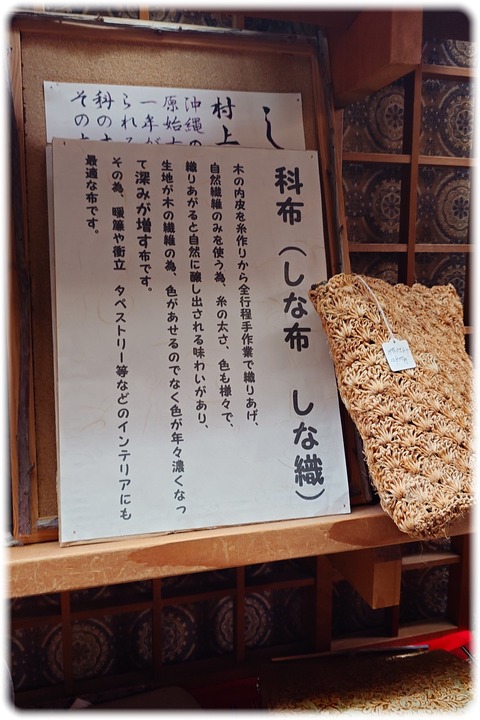 科布（しな布　しな織）
木の内皮を糸作りから全行程手作業で織りあげ、
自然繊維のみを使う為、糸の太さ、色も様々で、
織りあがると自然に醸し出される味わいがあり、
生地が木の繊維の為、色があせるのでなく色が年々濃くなっ
て深みが増す布です。
その為、暖簾や衝立　タペストリー等などのインテリアにも
最適な布です。
し
村上
沖縄の
原始
一年が
られれ
科の
その